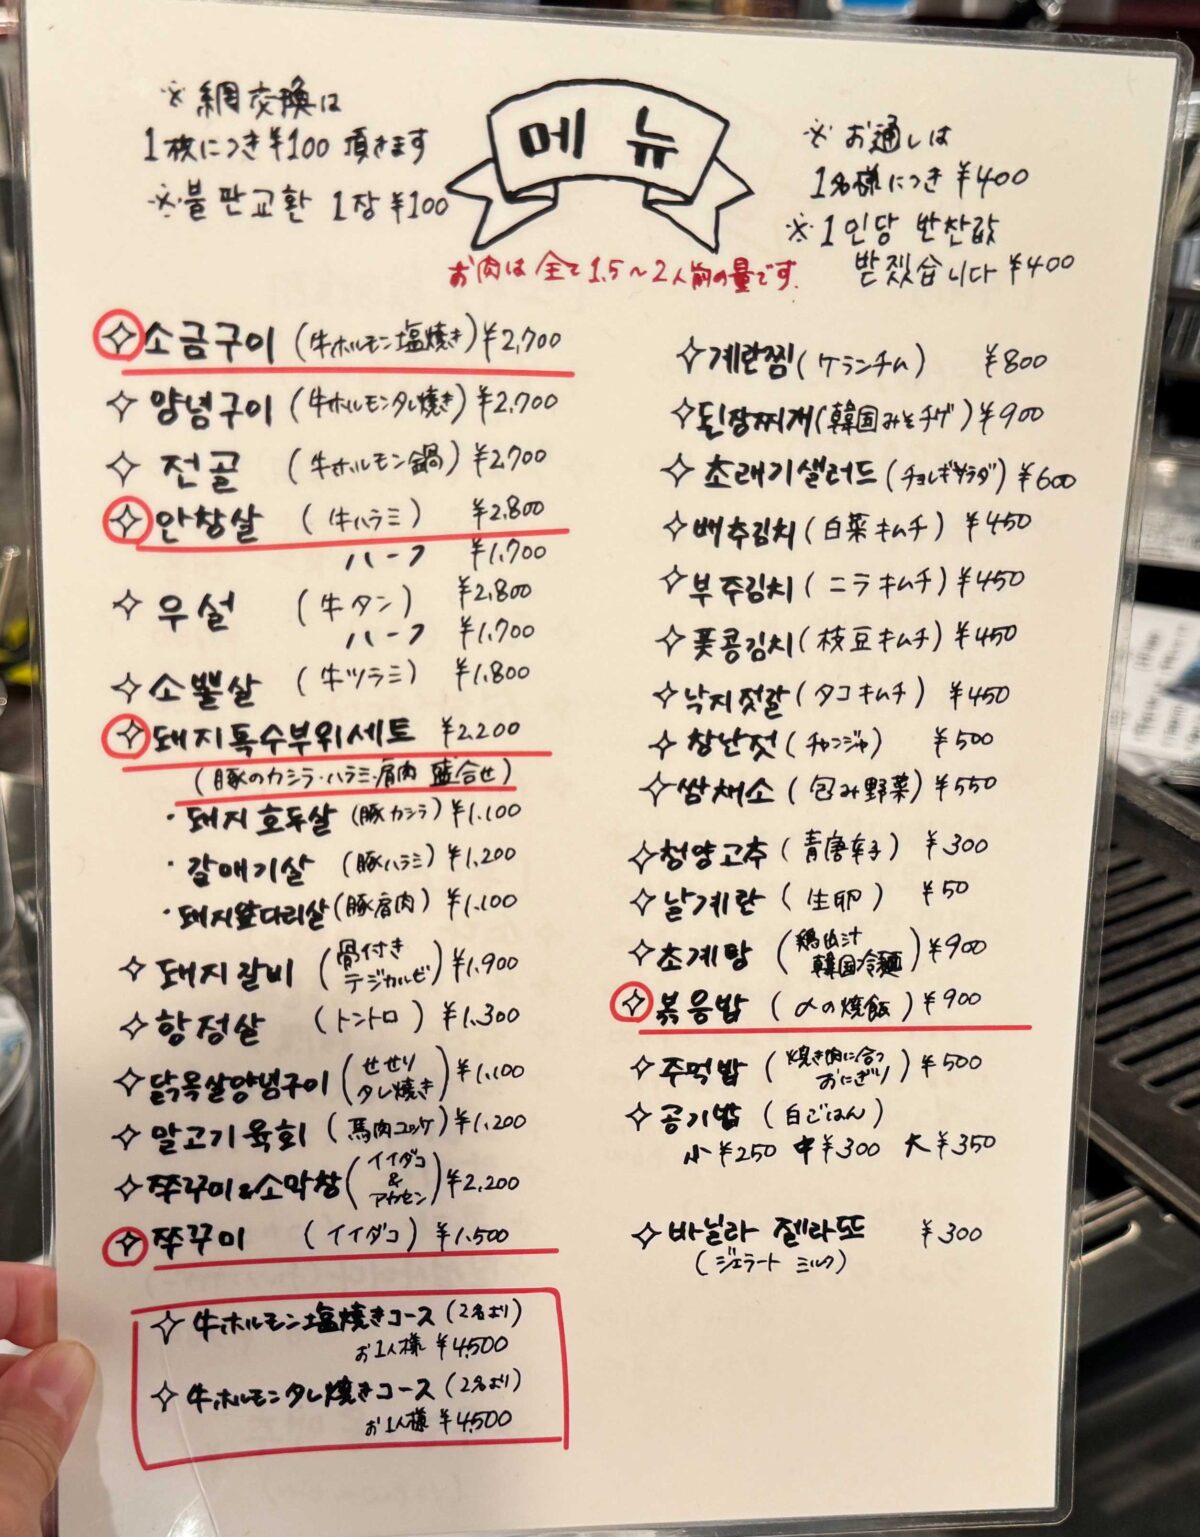 ※網交換は
1枚につき¥100 頂きます
※불판교환 1장 ¥100
메뉴
※お通しは
1名様につき ¥400
※1인당 반찬값
받겠습니다 ¥400
お肉は全て1.5〜2人前の量です。
✧소금구이 (牛ホルモン塩焼き) ¥2,700
✧양념구이 (牛ホルモンタレ焼き) ¥2,700
✧전골 (牛ホルモン鍋) ¥2,700
✧안창살 (牛ハラミ) ¥2,800
ハーフ ¥1,700
✧우설 (牛タン) ¥2,800
ハーフ ¥1,700
✧소뽈살 (牛ツラミ) ¥1,800
✧돼지특수부위세트 ¥2,200
(豚のカシラ・ハラミ・肩肉 盛合せ)
・돼지호두살 (豚カシラ) ¥1,100
・갈매기살 (豚ハラミ) ¥1,200
・돼지앞다리살 (豚肩肉) ¥1,100
✧돼지갈비 (骨付きテジカルビ) ¥1,900
✧항정살 (トントロ) ¥1,300
✧닭목살양념구이 (せせりタレ焼き) ¥1,100
✧말고기육회 (馬肉ユッケ) ¥1,200
✧쭈꾸미&소막창 (イイダコ&アカセン) ¥2,200
✧쭈꾸미 (イイダコ) ¥1,500
✧牛ホルモン塩焼きコース (2名より)
お1人様 ¥4,500
✧牛ホルモンタレ焼きコース (2名より)
お1人様 ¥4,500
✧계란찜 (ケランチム) ¥800
✧된장찌개 (韓国みそチゲ) ¥900
✧초래기샐러드 (チョレギサラダ) ¥600
✧배추김치 (白菜キムチ) ¥450
✧부추김치 (ニラキムチ) ¥450
✧풋콩김치 (枝豆キムチ) ¥450
✧낙지젓갈 (タコキムチ) ¥450
✧창난젓 (チャンジャ) ¥500
✧쌈채소 (包み野菜) ¥550
✧청양고추 (青唐辛子) ¥300
✧날계란 (生卵) ¥50
✧초계탕 (鶏出汁韓国冷麺) ¥900
✧볶음밥 (〆の焼飯) ¥900
✧주먹밥 (焼き肉に合うおにぎり) ¥500
✧공기밥 (白ごはん)
小¥250 中¥300 大¥350
✧바닐라 젤라또 ¥300
(ジェラート ミルク)